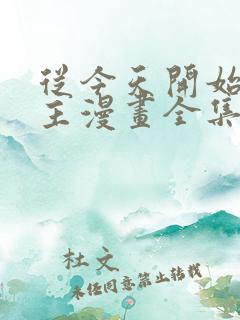 從今天開始
王漫畫全集
杜文
未經同意禁止轉載